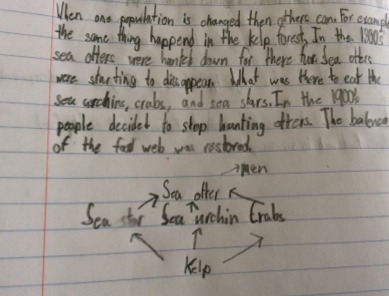 When one population is changed then others can. For example
the same thing happend in the kelp forest. In the 1800s
sea otters were hunted down for there fur. Sea otters
were starting to disappear. What was there to eat the
sea urchins, crabs, and sea stars. In the 1900s
people decided to stop hunting otters. The balance
of the food web was restored.
men
Sea otter
Sea star Sea urchin Crabs
Kelp